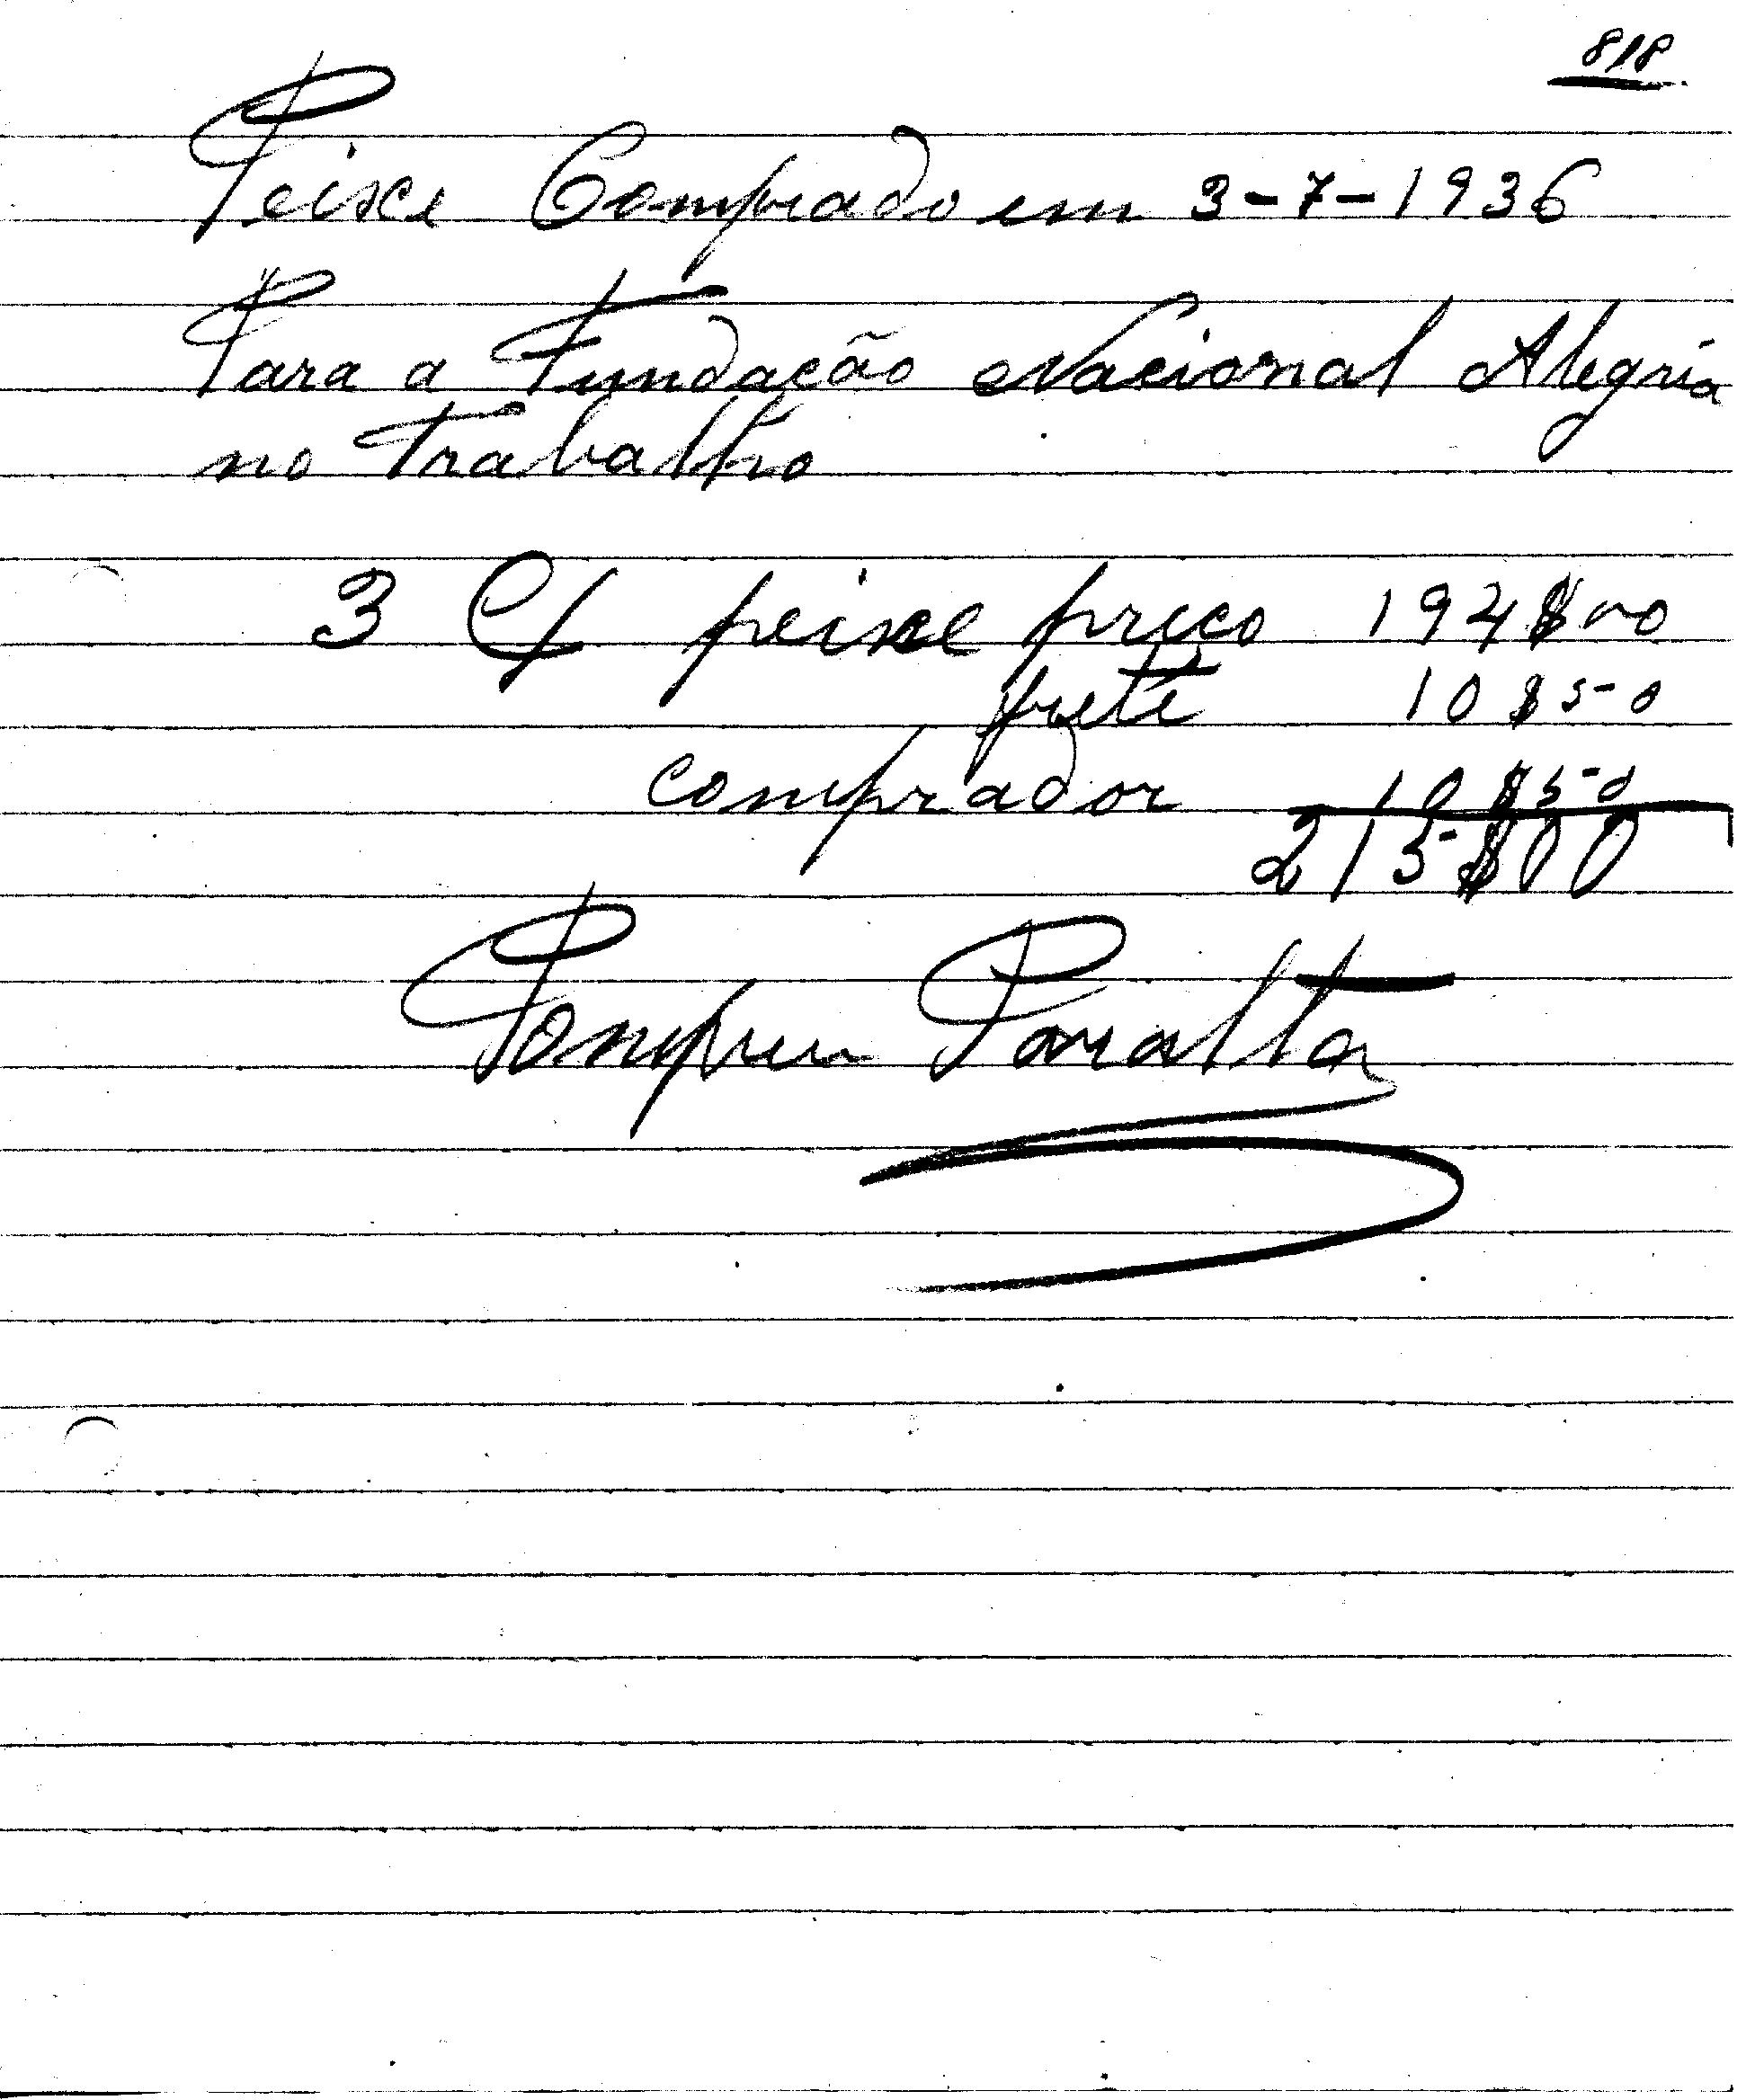 818
Peixe Comprado em 3-7-1936
Para a Fundação Nacional Alegria
no Trabalho
3 C/ peixe preço 194$00
frete 10$50
comprador 10$50
215$00
Pompeu Paralta